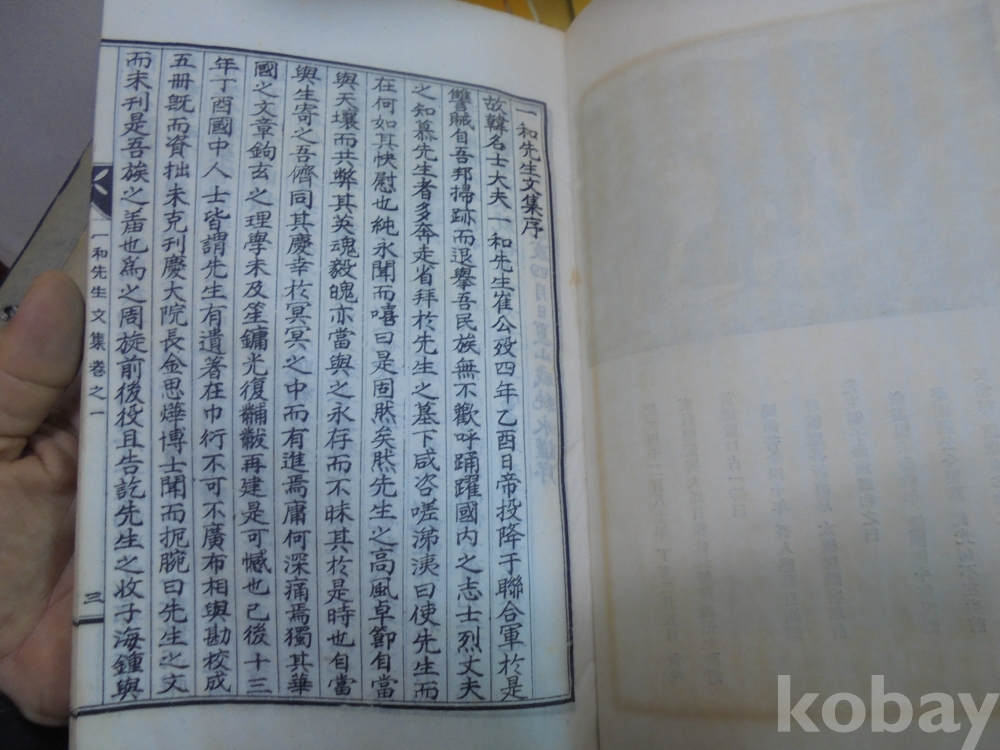 一和先生文集序
故韓名士大夫一和先生崔公歿四年乙酉日帝投降于聯合軍於是
讐賊自吾邦掃跡而退擧吾民族無不歡呼踊躍國內之志士烈丈夫
之知慕先生者多奔走省拜於先生之墓下咸咨嗟涕洟曰使先生而
在何如其快慰也純永聞而嘻曰是固然矣然先生之高風卓節自當
與天壤而共弊其英魂毅魄亦當與之永存而不昧其於是時也自當
與生寄之吾儕同其慶幸於冥冥之中而有進焉庸何深痛焉獨其華
國之文章鉤玄之理學未及笙鏞光復黼黻再建是可憾也已後十三
年丁酉國中人士皆謂先生有遺著在巾衍不可不廣布相與勘校成
五冊旣而資拙未克刊慶大院長金思燁博士聞而扼腕曰先生之文
而未刊是吾族之羞也爲之周旋前後役且告訖先生之收子海鍾與
一和先生文集 卷之一
三
kobay